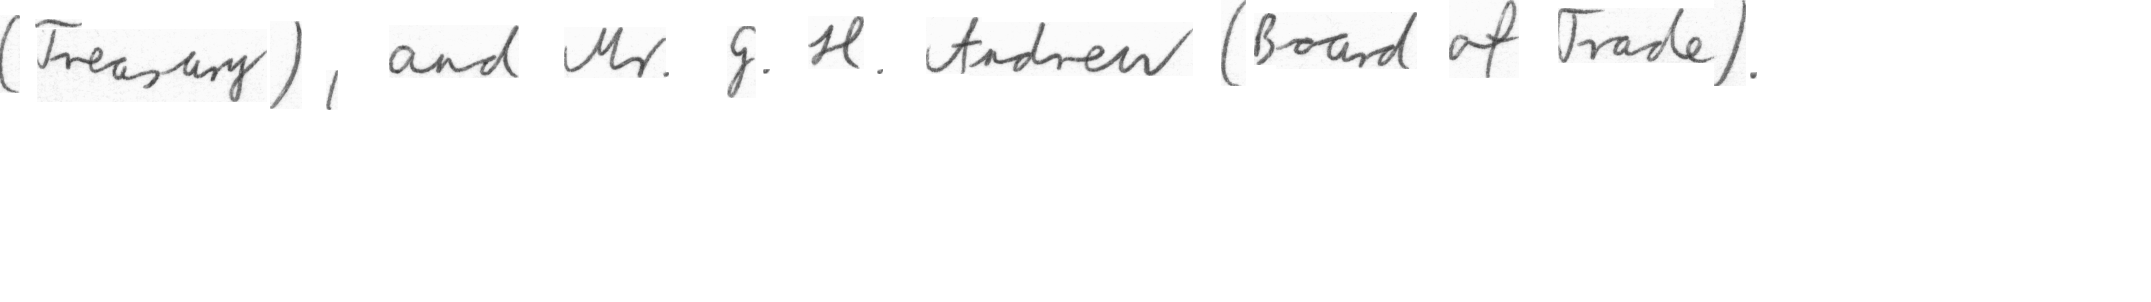 (Treasury), and Mr. G. H. Andrew (Board of Trade).